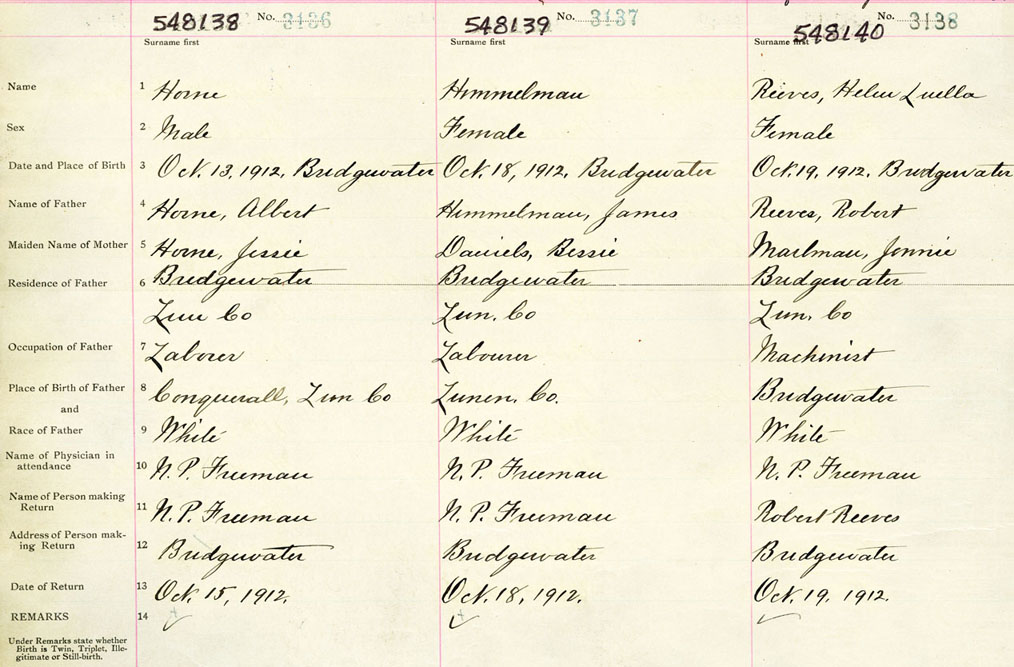 548138 No. 3136 548139 No. 3137 548140 No. 3138
Surname first Surname first Surname first
Name 1 Horne Himmelman Reeves, Helen Luella
Sex 2 Male Female Female
Date and Place of Birth 3 Oct. 13, 1912, Bridgewater Oct. 18, 1912, Bridgewater Oct. 19, 1912. Bridgewater
Name of Father 4 Horne, Albert Himmelman, James Reeves, Robert
Maiden Name of Mother 5 Horne, Jessie Daniels, Bessie Mailman, Jennie
Residence of Father 6 Bridgewater Bridgewater Bridgewater
Lun Co Lun. Co Lun. Co
Occupation of Father 7 Laborer Labourer Machinist
Place of Birth of Father 8 Conquerall, Lun Co Lunen. Co. Bridgewater
and
Race of Father 9 White White White
Name of Physician in
attendance 10 N. P. Freeman N. P. Freeman N. P. Freeman
Name of Person making
Return 11 N. P. Freeman N. P. Freeman Robert Reeves
Address of Person mak-
ing Return 12 Bridgewater Bridgewater Bridgewater
Date of Return 13 Oct. 15, 1912. Oct. 18, 1912. Oct. 19, 1912.
REMARKS 14
Under Remarks state whether
Birth is Twin, Triplet, Ille-
gitimate or Still-birth.